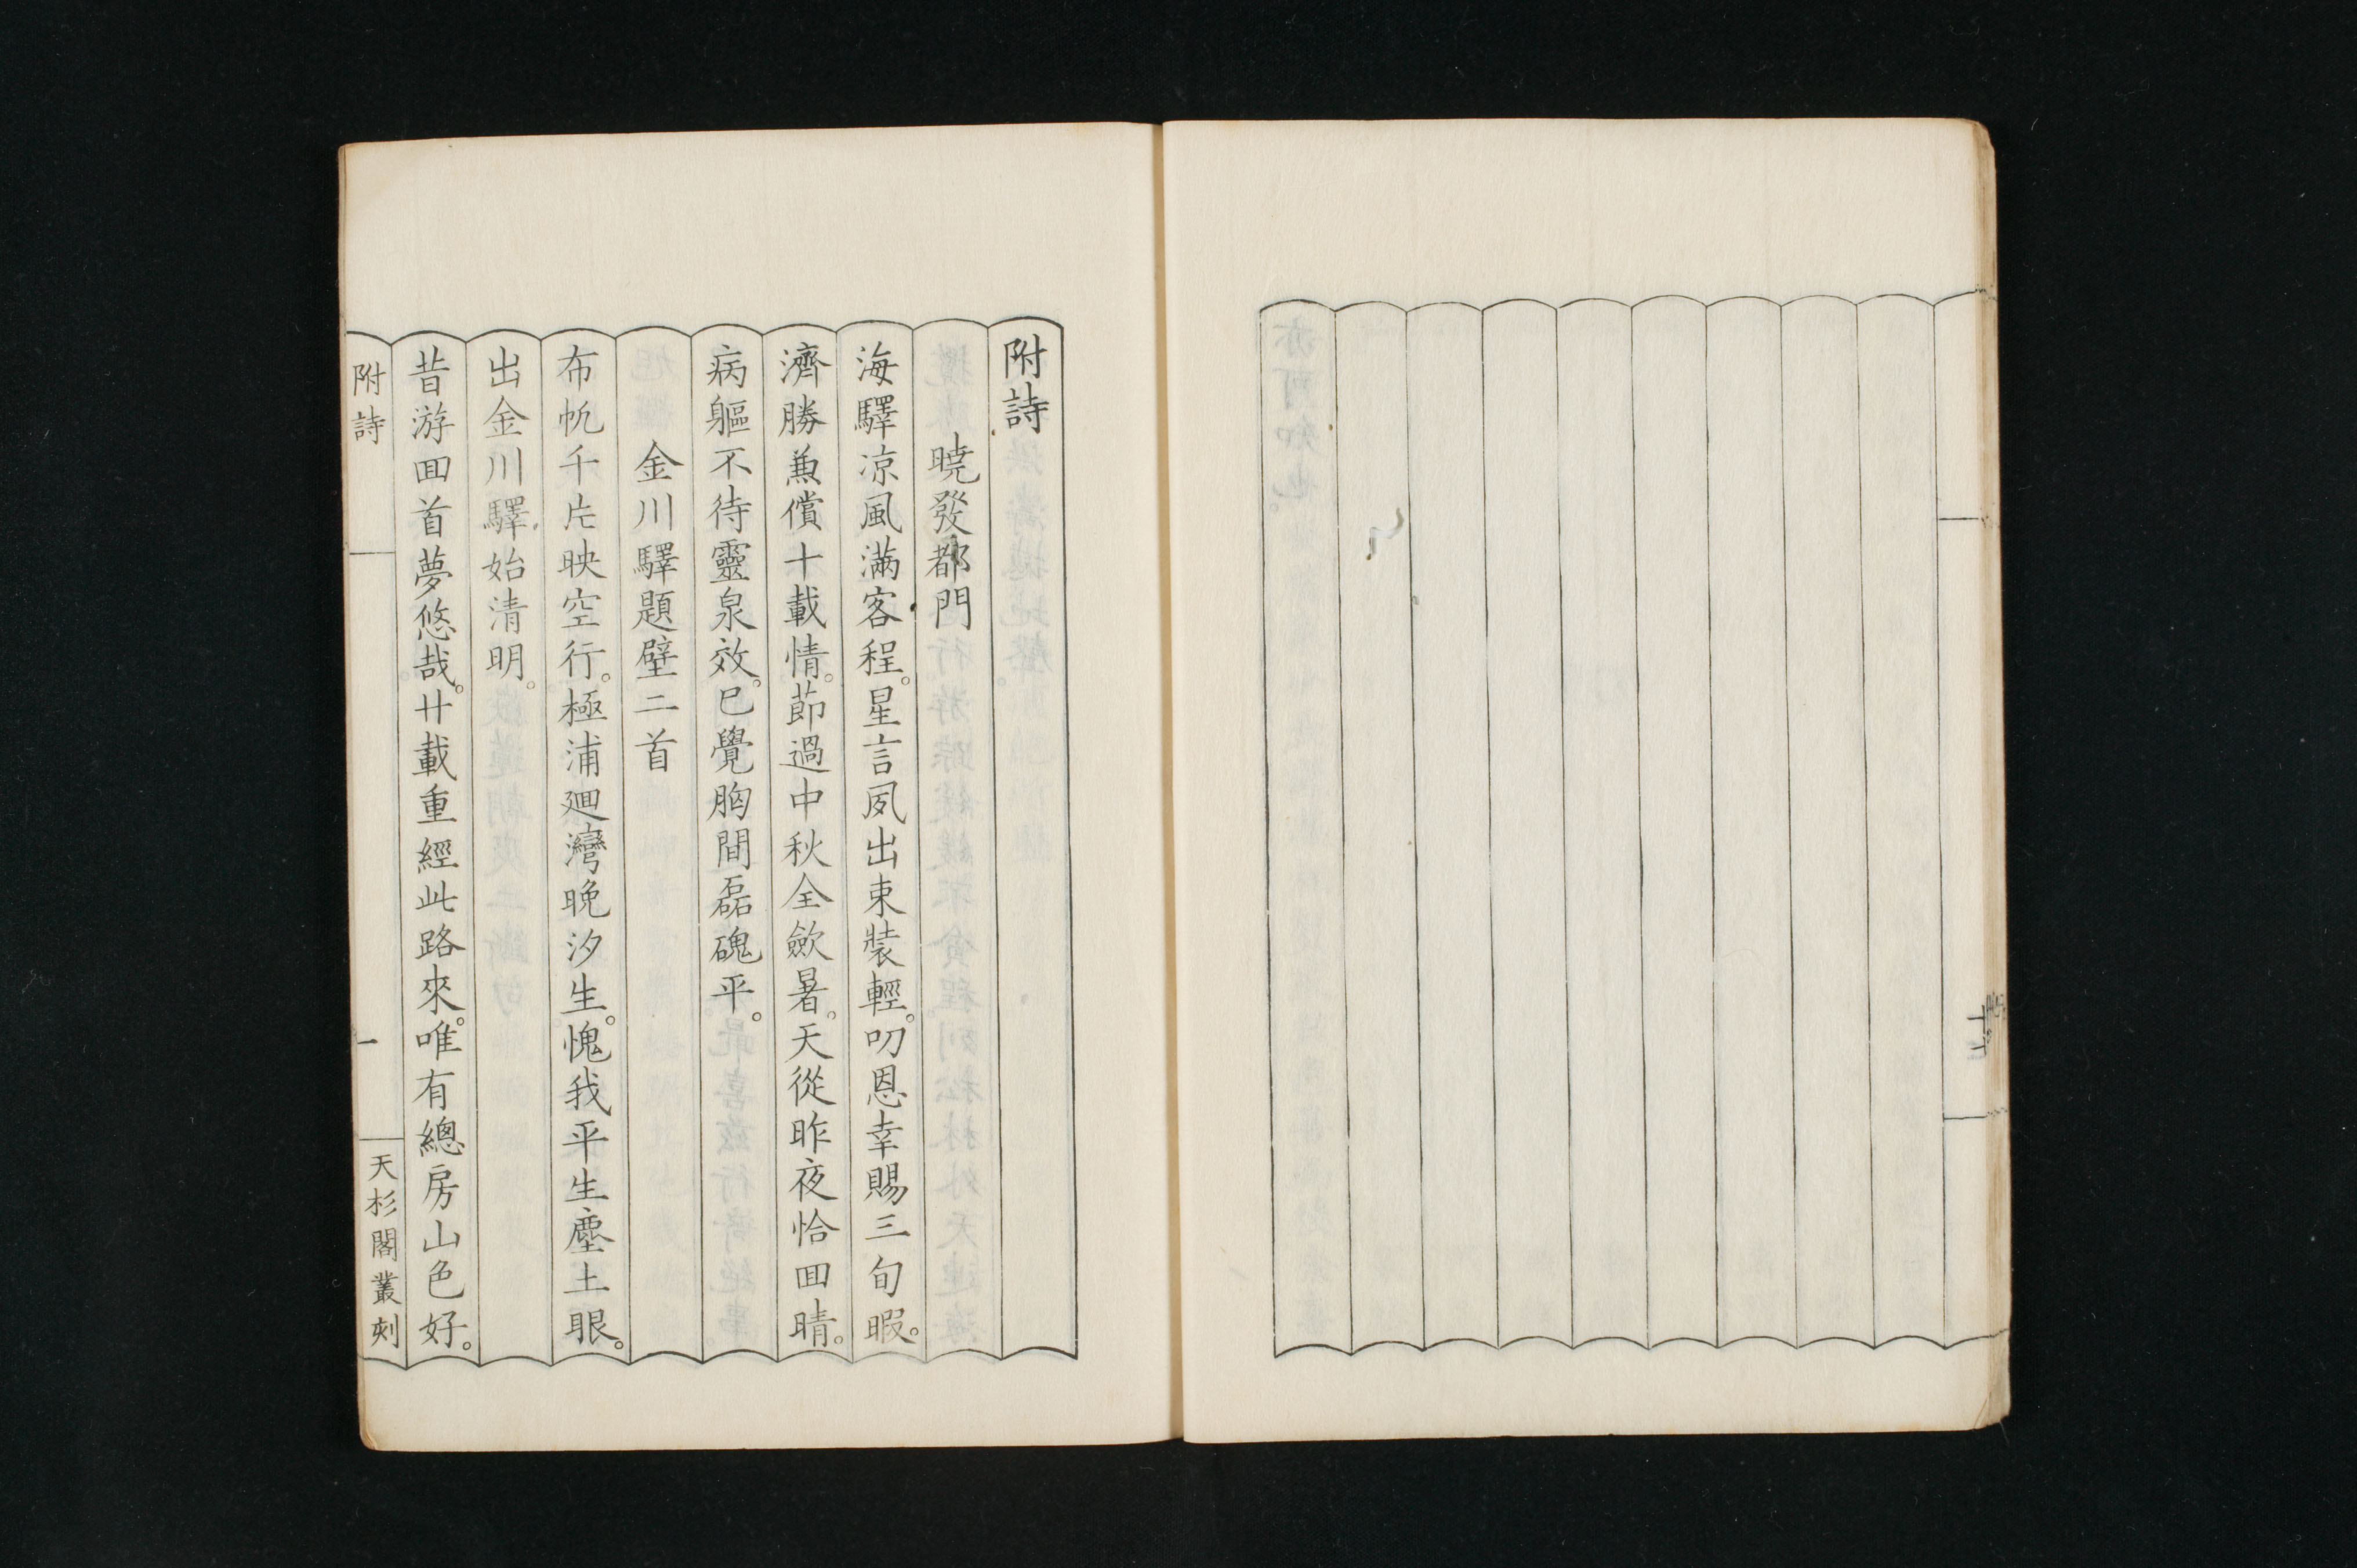 十七
附詩
曉發都門
海驛凉風滿客程。星言夙出束裝輕。叨恩幸賜三旬暇。
濟勝兼償十載情。節過中秋全歛暑。天從昨夜恰回晴。
病軀不待靈泉效。已覺胸間磊磈平。
金川驛題壁二首
布帆千片映空行。極浦廻灣晚汐生。愧我平生塵土眼。
出金川驛始清明。
昔游回首夢悠哉。廿載重經此路來。唯有總房山色好。
附詩
一
天杉閣叢刻